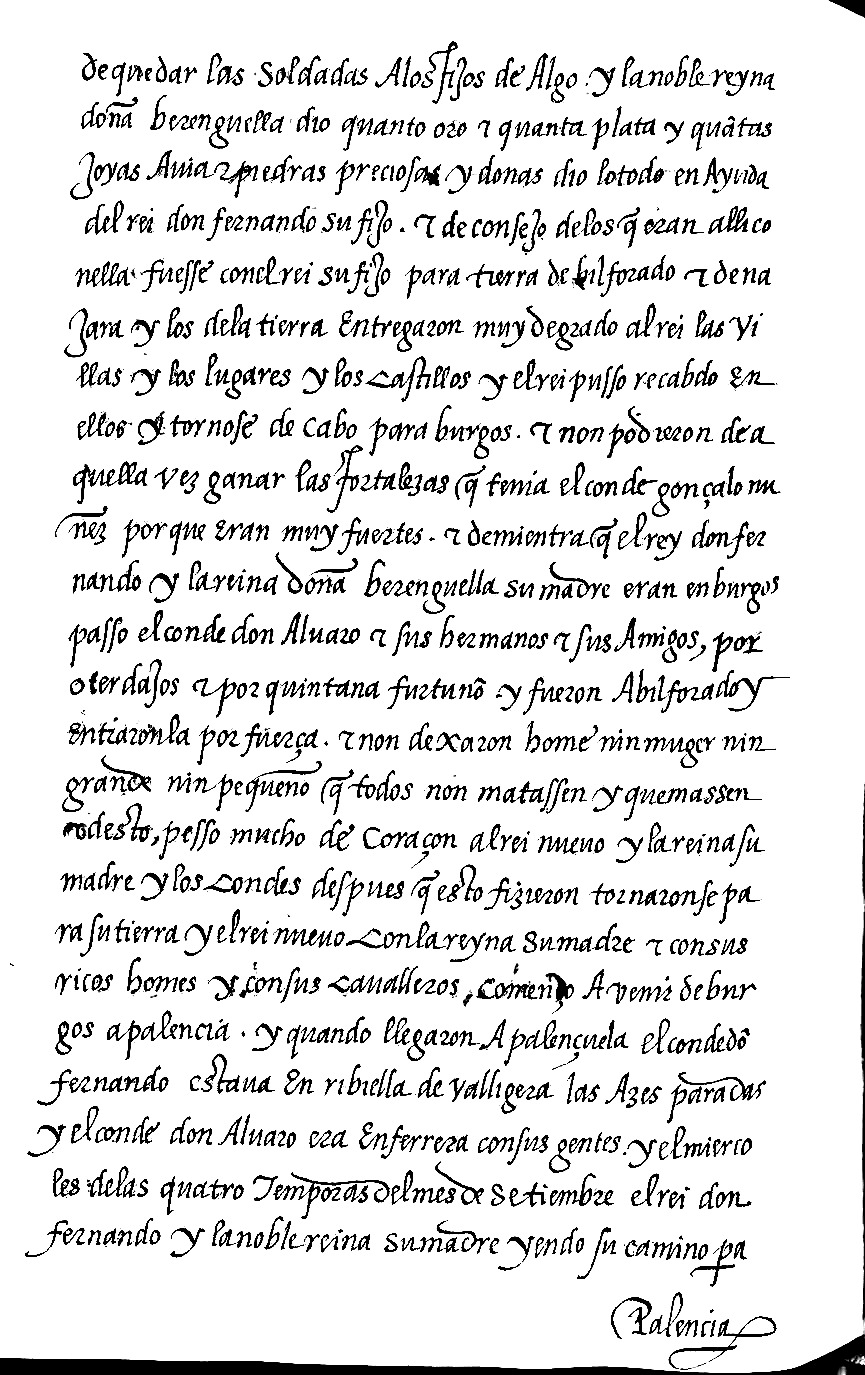 de quedar las soldadas Alos fijos de Algo . y la noble reyna
doña berenguella dio quanto oro ⁊ quanta plata y quãtas
Joyas Auia ⁊ piedras preciosas y donas dio lo todo en Ayuda
del rei don fernando su fijo . ⁊ de consejo delos q̃ eran alli co
nella fuesse conel rei su fijo para tierra de bilforado ⁊ de na
Jara y los dela tierra Entregaron muy de grado al rei las Vi
llas y los lugares y los Castillos y el rei pusso recabdo En
ellos y tornose de Cabo para burgos . ⁊ non podieron de a
quella vez ganar las fortalezas q̃ tenia el conde gonçalo nu
ñez porque Eran muy fuertes . ⁊ demientra q̃ el rey don fer
nando y la reina doña berenguella su madre eran en burgos
passo el conde don Aluaro ⁊ sus hermanos ⁊ sus Amigos, por
oterdajos ⁊ por quintana furtunõ y fueron Abilforado y
Entraronla por fuerça . ⁊ non dexaron home nin muger nin
grande nin pequeño q̃ todos non matassen y quemassen
desto, pesso mucho de Coraçon al rei nueuo y la reina su
madre y los Condes despues q̃ esto fizieron tornaronse pa
ra su tierra y el rei nueuo Con la reyna su madre ⁊ con sus
ricos homes y con sus Cavalleros, Començo A venir de bur
gos a palencia . y quando llegaron A palençuela el conde dõ
fernando Estaua En ribiella de valligera las Azes paradas
y el conde don Aluaro era En ferrera con sus gentes . y el mierco
les delas quatro Temporas del mes de Setiembre el rei don
fernando y la noble reina su madre yendo su camino pa
Palencia